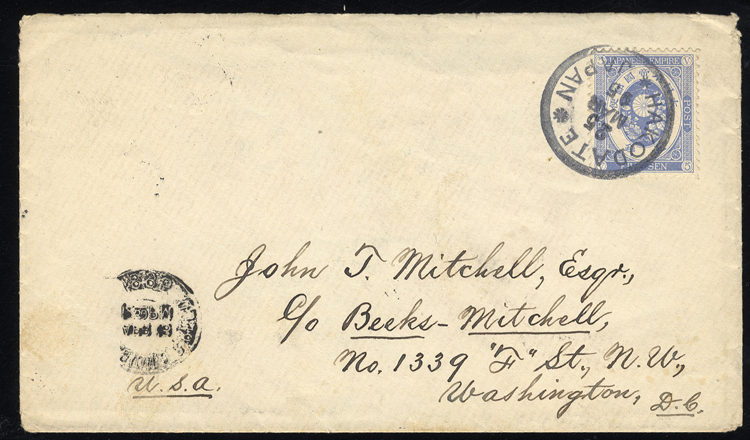 JAPANESE EMPIRE
POST
5 SEN 5
HAKODATE
JAPAN
25
MAR
95
John T. Mitchell, Esqr.,
c/o Beeks-Mitchell,
No. 1339 "F" St., N.W.,
Washington, D.C.
U.S.A.